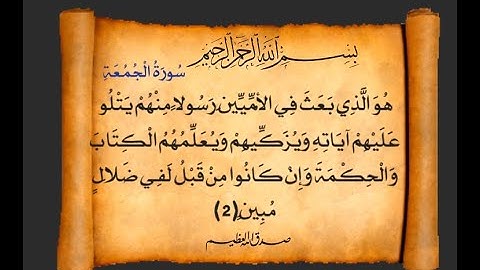 بِسْمِ اللهِ الرَّحْمٰنِ الرَّحِيمِ
سُورَةُ الْجُمُعَةِ
هُوَ الَّذِي بَعَثَ فِي الأُمِّيِّينَ رَسُولًا مِنْهُمْ يَتْلُو
عَلَيْهِمْ آيَاتِهِ وَيُزَكِّيهِمْ وَيُعَلِّمُهُمُ الْكِتَابَ
وَالْحِكْمَةَ وَإِنْ كَانُوا مِنْ قَبْلُ لَفِي ضَلَالٍ
مُبِينٍ (2)
صدق الله العظيم